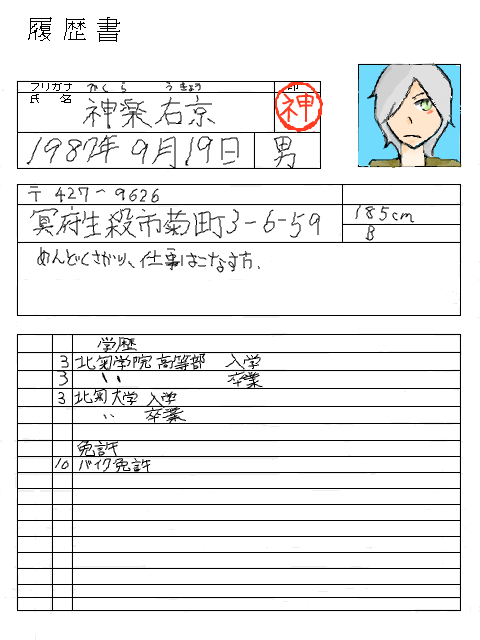 履歴書
フリガナ かくら うきょう 印
氏名 神楽右京 神
1987年 9月19日 男
〒427-9626
冥府生殺市菊町3-6-59 185cm
B
めんどくさがり、仕事はこなす方.
学歴
3 北菊学院高等部 入学
3 〃 卒業
3 北菊大学 入学
〃 卒業
免許
10 バイク免許